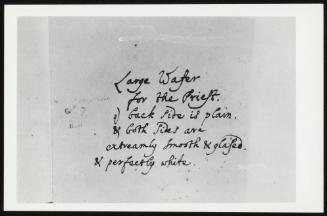 Large Wafer
for the Priest.
ye back side is plain.
& both sides are
extreamly smooth & glased.
& perfectly white.